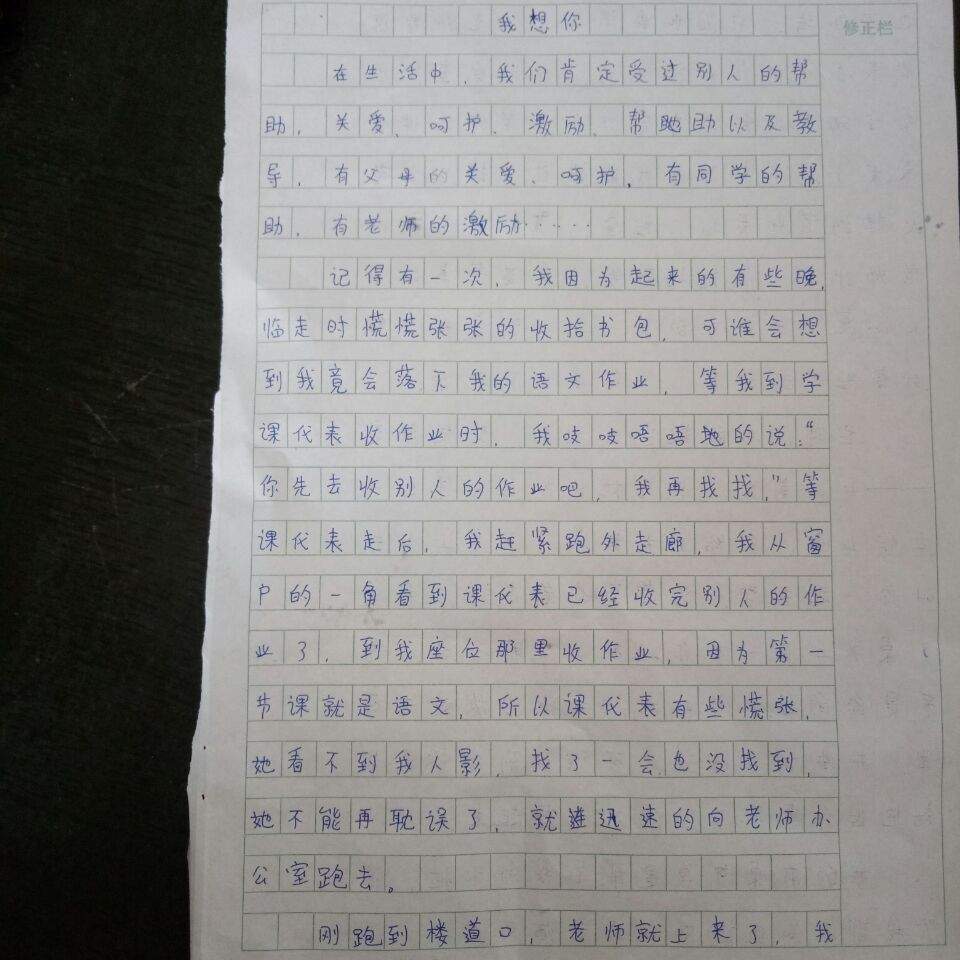 我想你
修正栏
在生活中，我们肯定受过别人的帮
助，关爱、呵护、激励、帮助以及教
导，有父母的关爱、呵护，有同学的帮
助，有老师的激励·····
记得有一次，我因为起来的有些晚，
临走时慌慌张张的收拾书包，可谁会想
到我竟会落下我的语文作业，等我到学
课代表收作业时，我吱吱唔唔地的说：“
你先去收别人的作业吧，我再找找，”等
课代表走后，我赶紧跑外走廊，我从窗
户的一角看到课代表已经收完别人的作
业了，到我座位那里收作业，因为第一
节课就是语文，所以课代表有些慌张，
她看不到我人影，找了一会也没找到，
她不能再耽误了，就迅速的向老师办
公室跑去。
刚跑到楼道口，老师就上来了，我